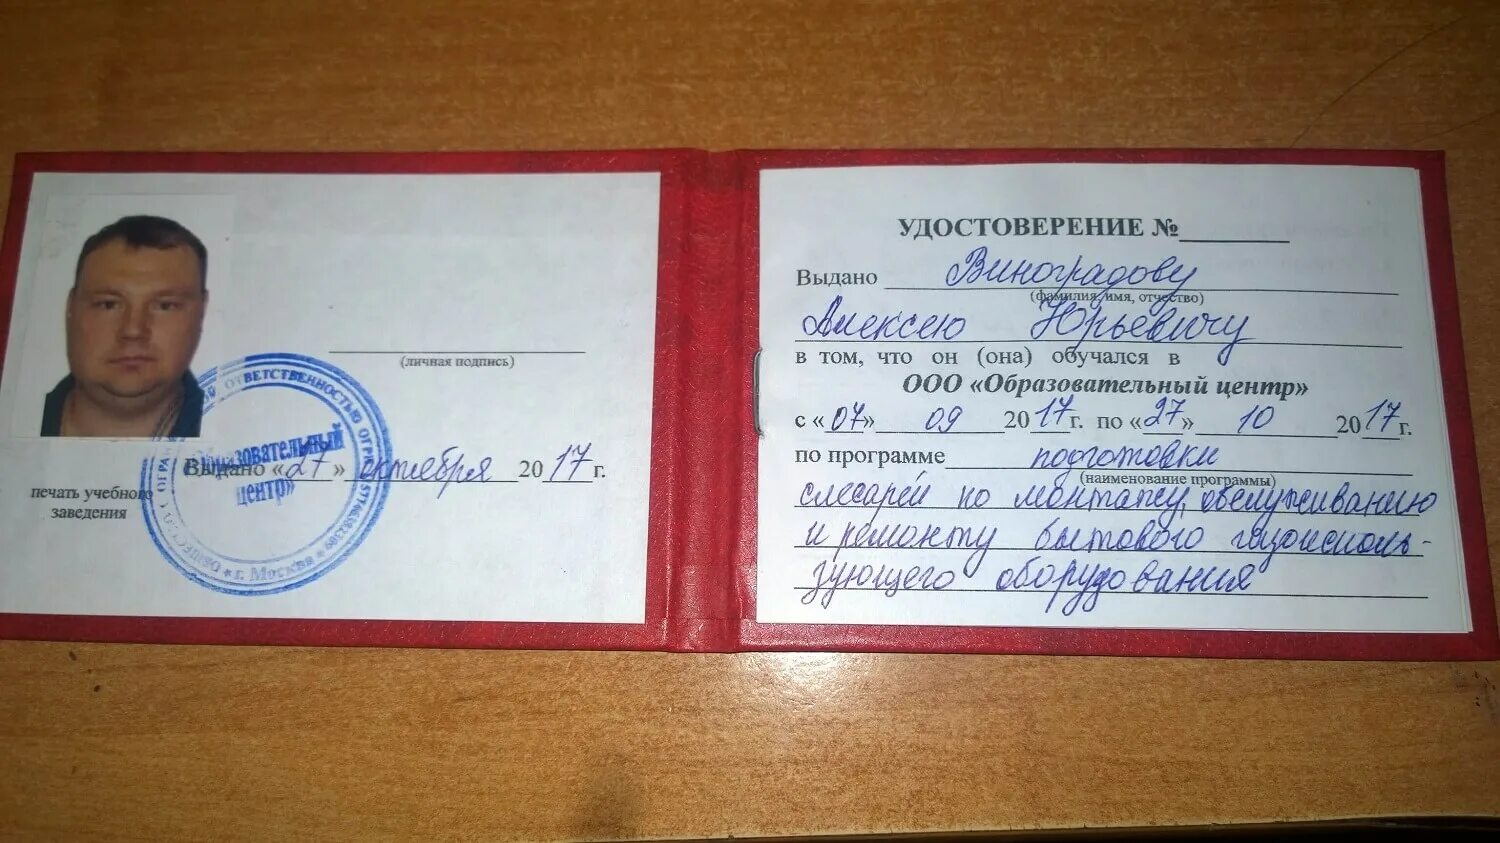 (личная подпись)
ОТВЕТСТВЕННОСТЬЮ
Образовательный
центр»
г. Москва
Выдано «27» октября 2017 г.
печать учебного
заведения
УДОСТОВЕРЕНИЕ №
Выдано Виноградову
(фамилия, имя, отчество)
Алексею Юрьевичу
в том, что он (она) обучался в
ООО «Образовательный центр»
с «07» 09 2017 г. по «27» 10 2017 г.
по программе подготовки
(наименование программы)
слесарей по монтажу, обслуживанию
и ремонту бытового газоисполь-
зующего оборудования